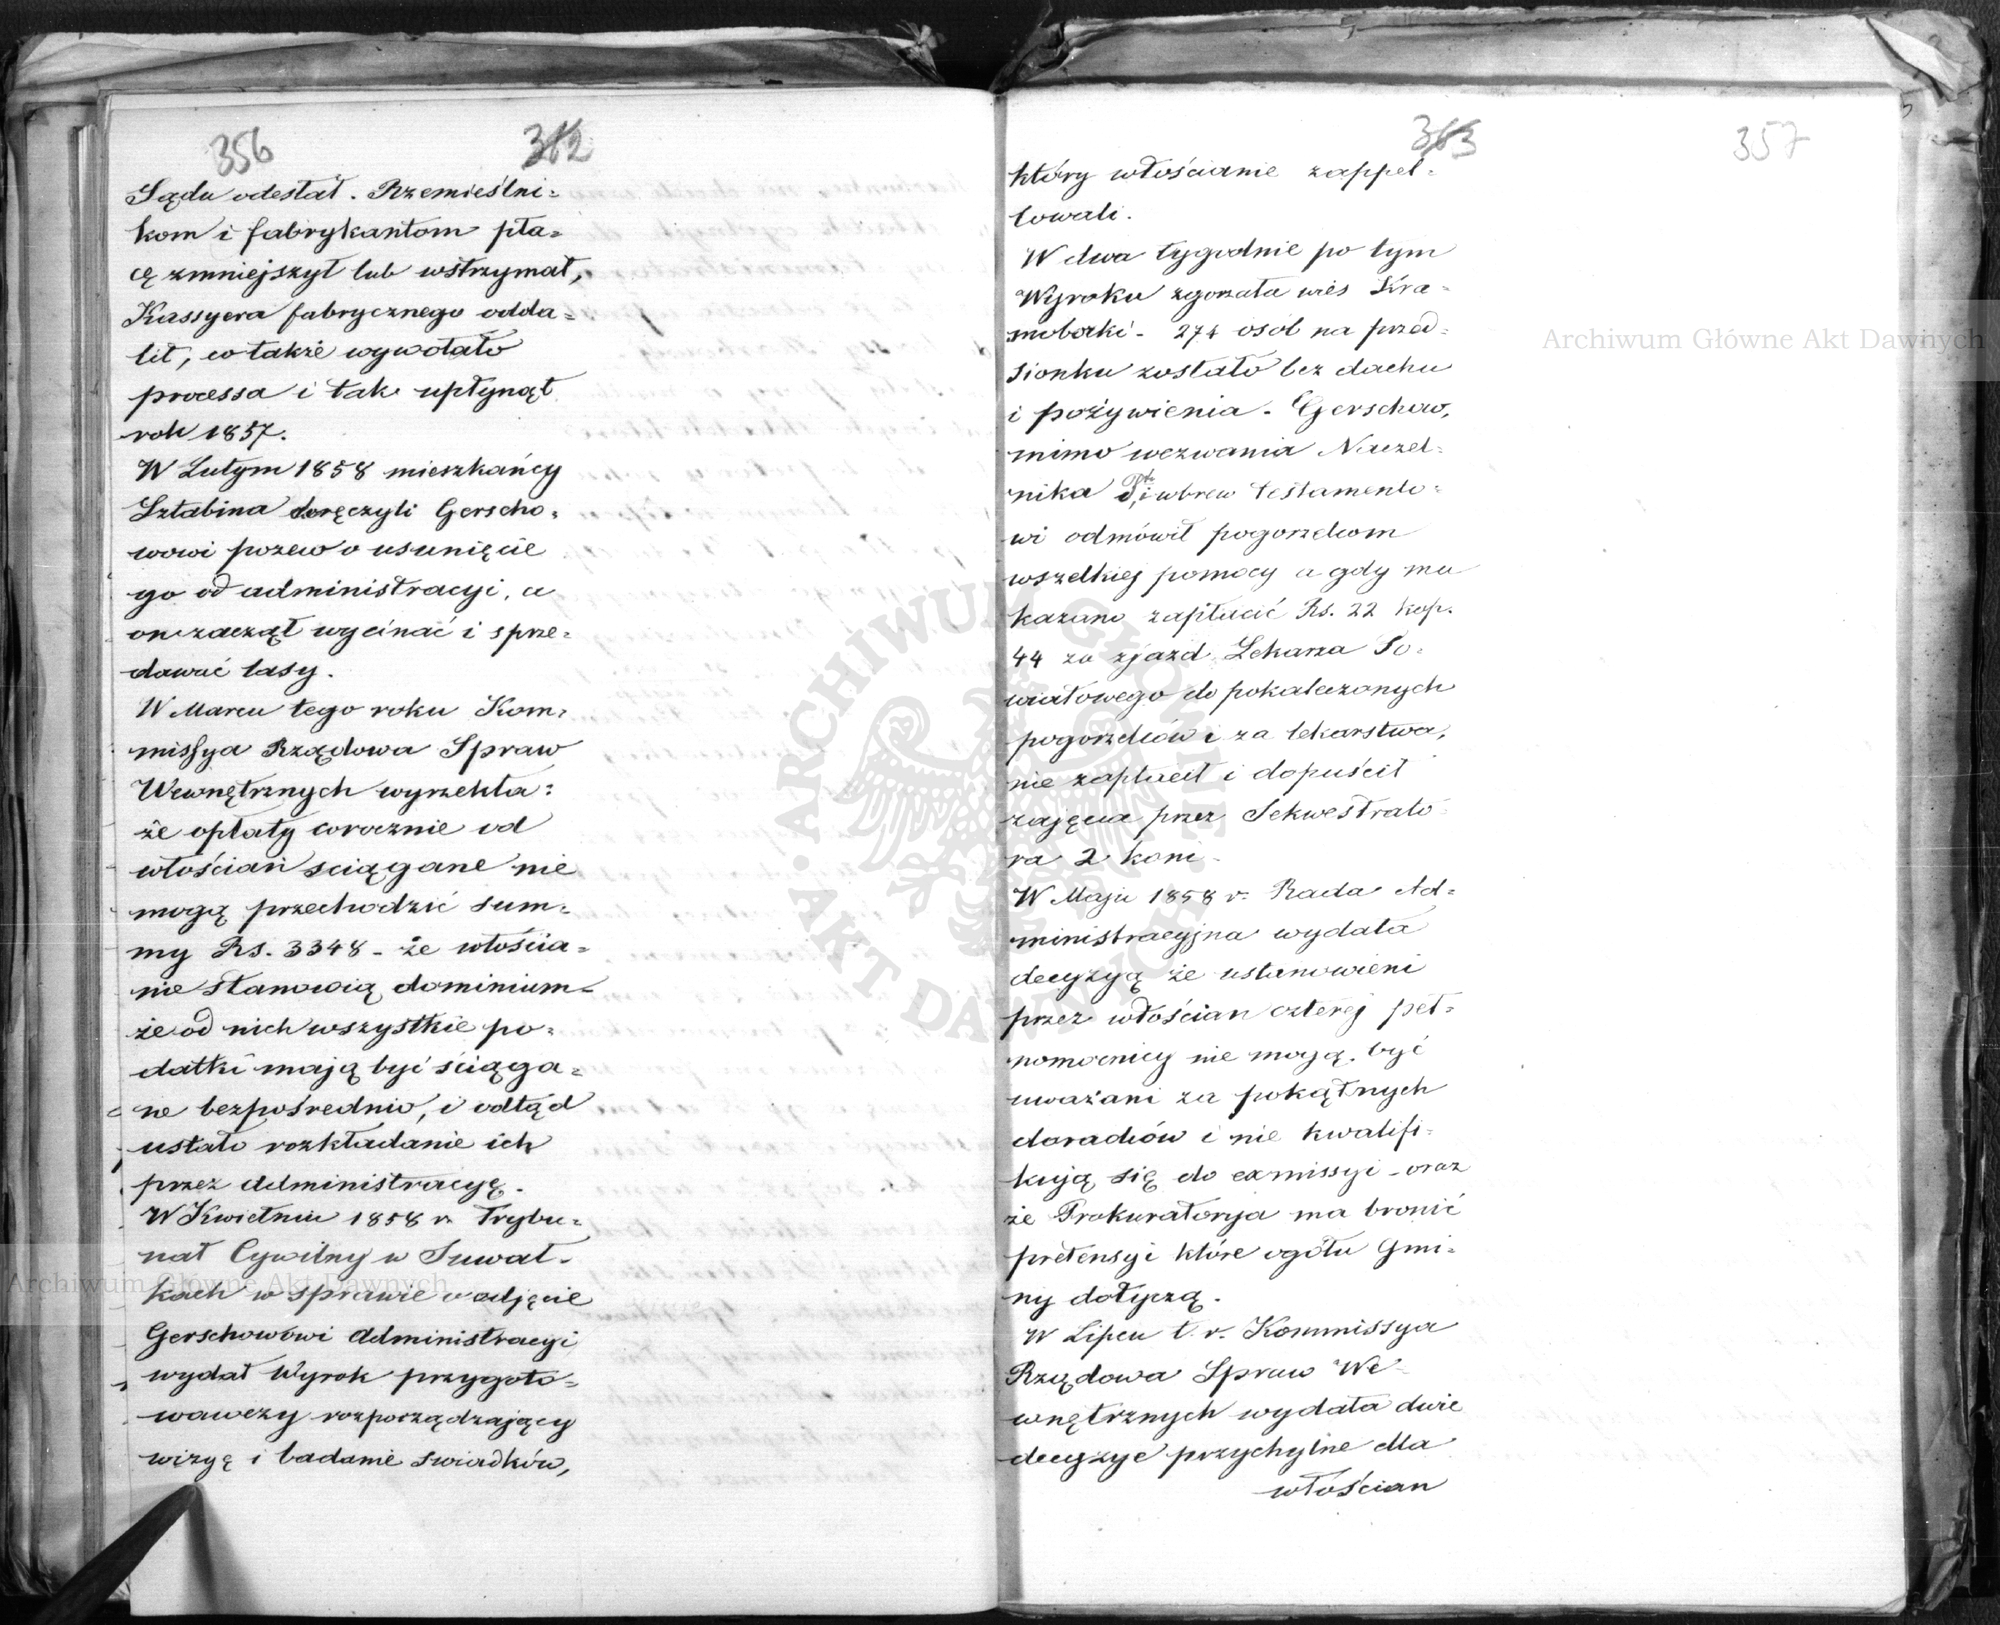 356
312
Sądu odesłał. Rzemieślni=
kom i fabrykantom pła=
cę zmniejszył lub wstrzymał,
Kassyera fabrycznego odda=
lił, co także wywołało
processa i tak upłynął
rok 1857.
W Lutym 1858 mieszkańcy
Sztabina doręczyli Gerscho=
wowi pozew o usunięcie
go od administracyi, a
on zaczął wycinać i sprze=
dawać lasy.
W Marcu tego roku Kom=
missya Rządowa Spraw
Wewnętrznych wyrzekła:
że opłaty corocznie od
włościan sciągane nie
mogą przechodzić sum=
my Rs. 3348 - że włościa=
nie stanowią dominium -
że od nich wszystkie po=
datki mają być ściąga=
ne bezpośrednio, i odtąd
ustało rozkładanie ich
przez administracyę.
W Kwietniu 1858 r. Trybu=
nał Cywilny w Suwał-
kach w sprawie o odjęcie
Gerschowowi administracyi
wydał Wyrok przygoto=
wawczy rozporządzający
wizyę i badanie swiadków,
363
357
który włościanie zappel=
lowali.
W dwa tygodnie po tym
Wyroku zgorzała wieś Kra=
snoborki - 274 osób na przed=
sionku zostało bez dachu
i pożywienia - Gerschow,
mimo wezwania Naczel=
nika Ptu i wbrew testamento=
wi odmówił pogorzelcom
wszelkiej pomocy a gdy mu
kazano zapłacić Rs. 22 kop.
44 za zjazd Lekarza Po=
wiatowego do pokaleczonych
pogorzelców i za lekarstwa,
nie zapłacił i dopuścił
zajęcia przez Sekwestrato=
ra 2 koni -
W Maju 1858 r. Rada Ad=
ministracyjna wydała
decyzyą że ustanowieni
przez włościan czterej peł=
nomocnicy nie mogą być
uważani za pokątnych
doradców i nie kwalifi=
kują się do exmissyi - oraz
że Prokuratorya ma bronić
pretensyi które ogółu Gmi=
ny dotyczą.
W Lipcu t. r. Kommissya
Rządowa Spraw We=
wnętrznych wydała dwie
decyzye przychylne dla
włościan
Archiwum Główne Akt Dawnych
Archiwum Główne Akt Dawnych
ARCHIWUM GŁÓWNE AKT DAWNYCH